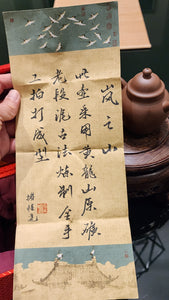 岚之山
此壶采用黄龙山原矿
老段泥古法炼制全手
工拍打成型